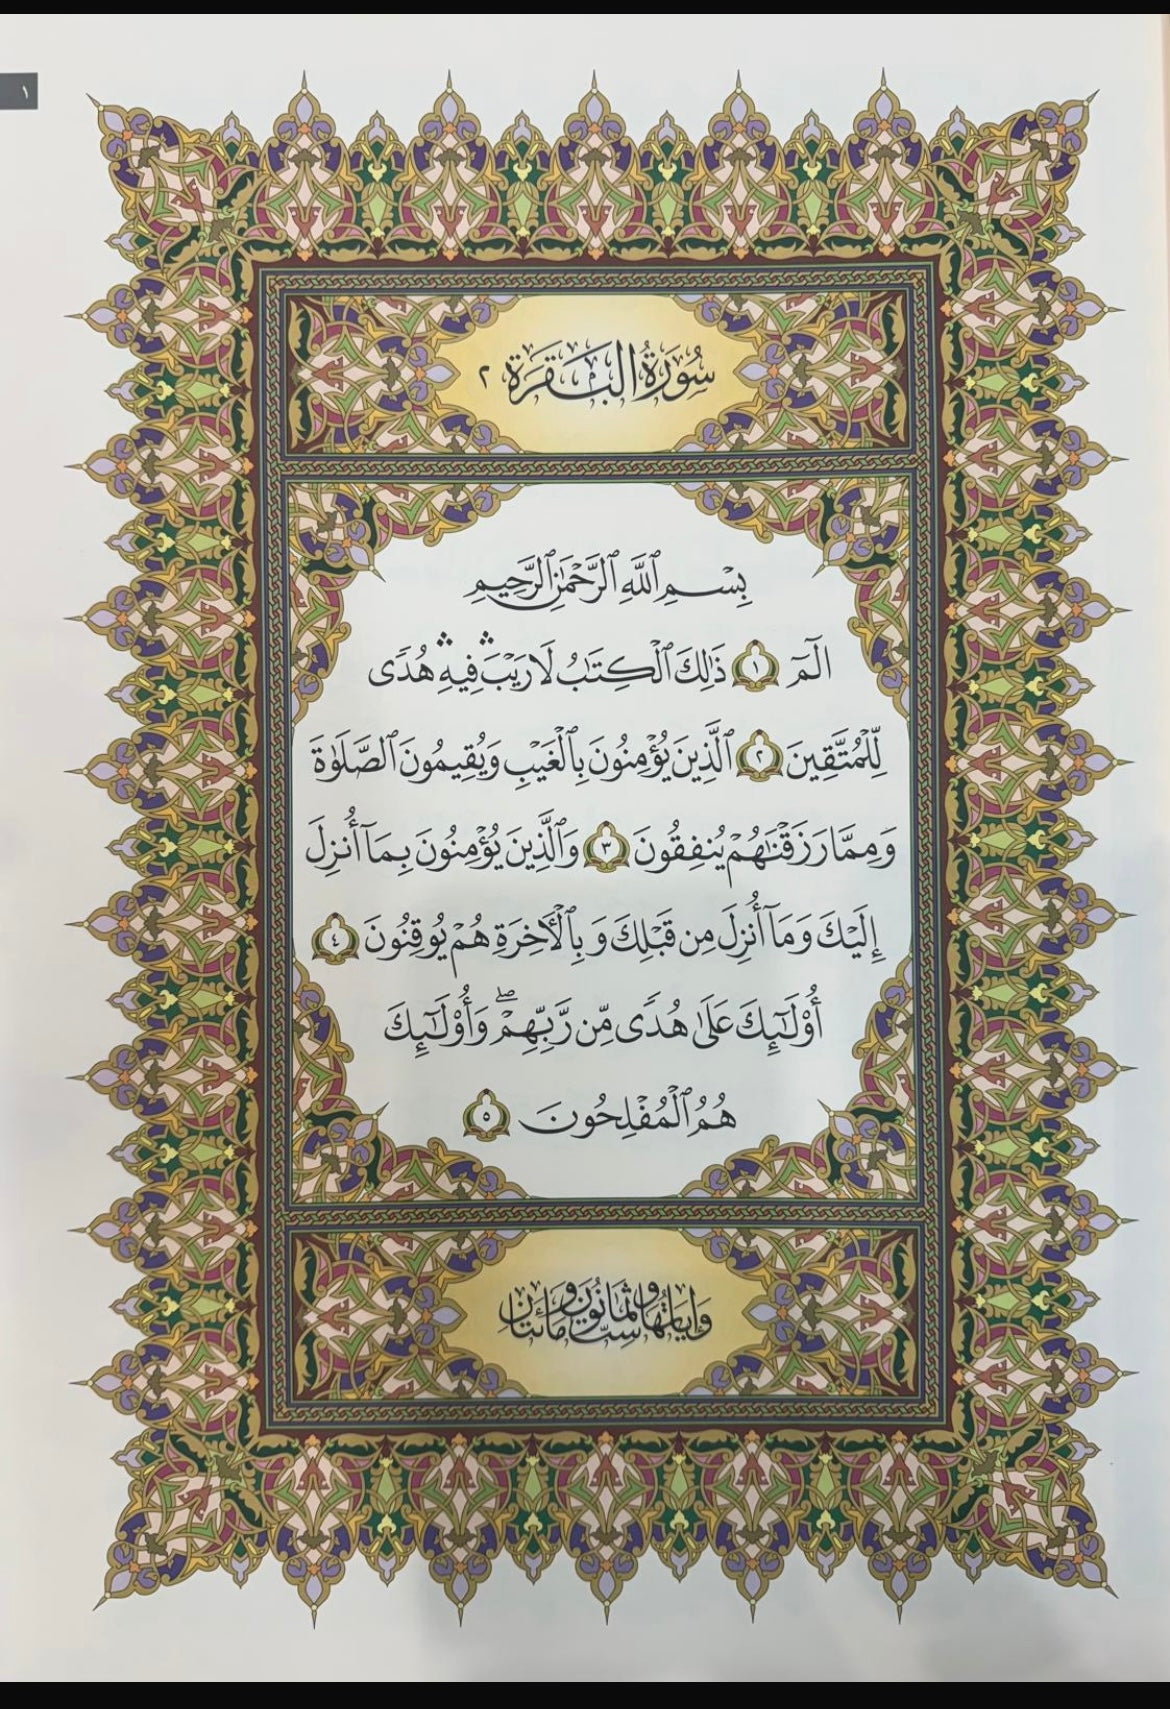 ١
سُورَةُ البَقَرَة ٢
بِسْمِ ٱللَّهِ ٱلرَّحْمَٰنِ ٱلرَّحِيمِ
الٓمٓ ١ ذَٰلِكَ ٱلْكِتَٰبُ لَا رَيْبَ ۛ فِيهِ ۛ هُدًى
لِّلْمُتَّقِينَ ٢ ٱلَّذِينَ يُؤْمِنُونَ بِٱلْغَيْبِ وَيُقِيمُونَ ٱلصَّلَوٰةَ
وَمِمَّا رَزَقْنَٰهُمْ يُنفِقُونَ ٣ وَٱلَّذِينَ يُؤْمِنُونَ بِمَآ أُنزِلَ
إِلَيْكَ وَمَآ أُنزِلَ مِن قَبْلِكَ وَبِٱلْأَخِرَةِ هُمْ يُوقِنُونَ ٤
أُو۟لَٰٓئِكَ عَلَىٰ هُدًى مِّن رَّبِّهِمْ ۖ وَأُو۟لَٰٓئِكَ
هُمُ ٱلْمُفْلِحُونَ ٥
وَاياتُها سِتٌّ وثَمَانُونَ وَمائتانِ